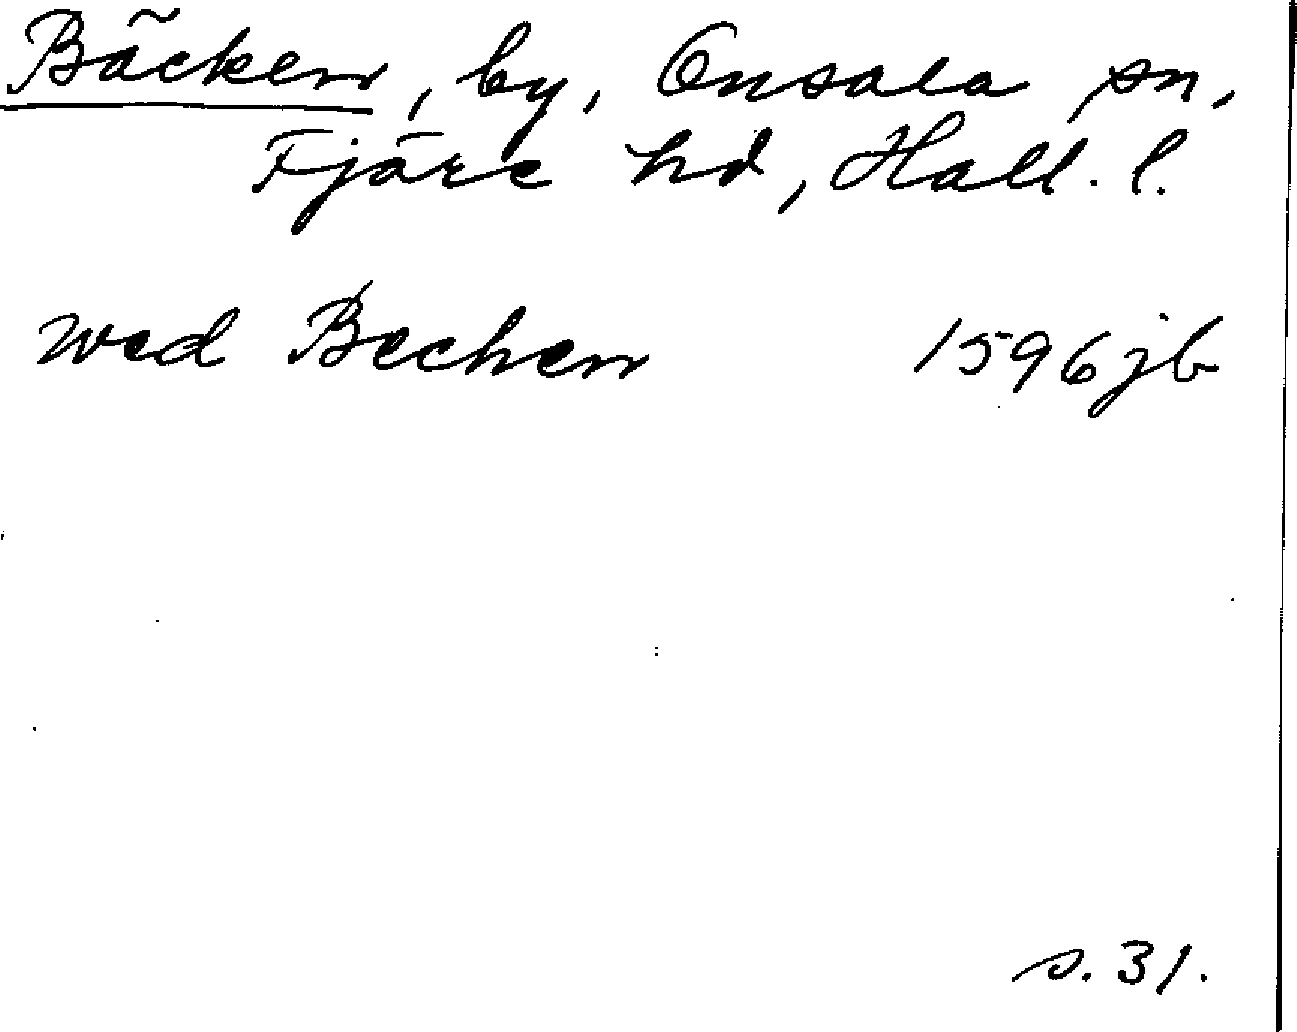 Bäcken, by, Onsala sn,
Fjäre hd, Hall. l.
wed Becken 1596 jb
s. 31.